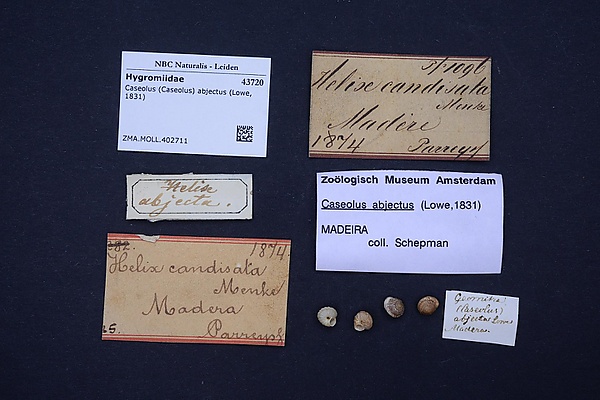 NBC Naturalis - Leiden
Hygromiidae 43720
Caseolus (Caseolus) abjectus (Lowe,
1831)
ZMA.MOLL.402711
Helix candisata
Menke
Madère
1874 Parreyss
Helix
abjecta.
Zoölogisch Museum Amsterdam
Caseolus abjectus (Lowe,1831)
MADEIRA
coll. Schepman
282. 1874.
Helix candisata
Menke
Madera
Parreyss
Geomitra
(Caseolus)
abjecta Lowe
Madera.